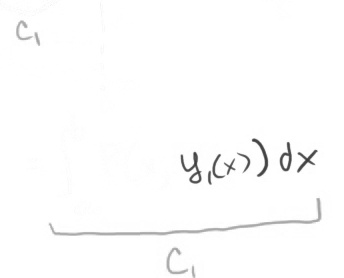 C₁
y₁(x)) dx
C₁